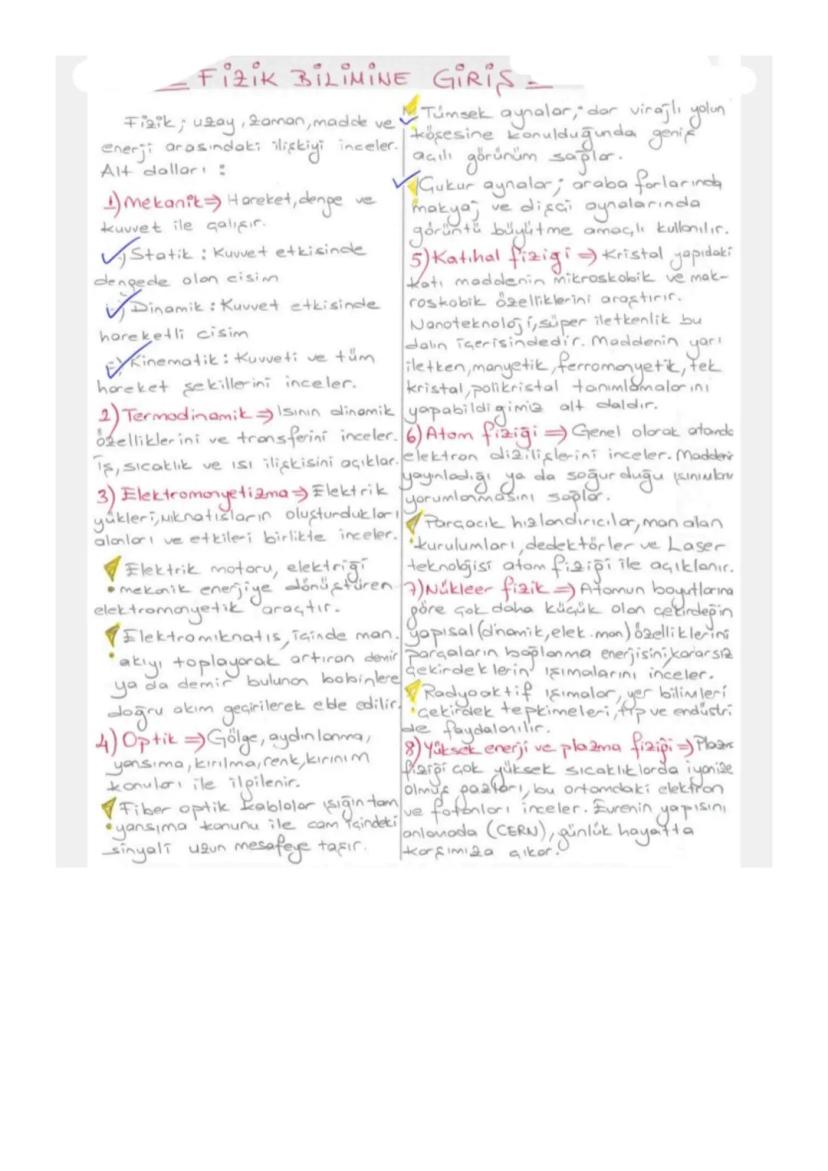 FİZİK BİLİMİNE GİRİŞ
Fizik; uzay, zaman, madde ve
enerji arasındaki ilişkiyi inceler.
Alt dalları :
1) Mekanik ⇒ Hareket, denge ve
kuvvet ile çalışır.
Statik : Kuvvet etkisinde
dengede olan cisim
Dinamik : Kuvvet etkisinde
hareketli cisim
Kinematik : Kuvveti ve tüm
hareket şekillerini inceler.
2) Termodinamik ⇒ Isının dinamik
özelliklerini ve transferini inceler.
İş, sıcaklık ve ısı ilişkisini açıklar.
3) Elektromanyetizma ⇒ Elektrik
yükleri, mıknatısların oluşturdukları
alanları ve etkileri birlikte inceler.
Elektrik motoru, elektriği
mekanik enerjiye dönüştüren
elektromanyetik araçtır.
Elektromıknatıs, içinde man.
akıyı toplayarak artıran demir
ya da demir bulunan bobinlere
doğru akım geçirilerek elde edilir.
4) Optik ⇒ Gölge, aydınlanma,
yansıma, kırılma, renk, kırınım
konuları ile ilgilenir.
Fiber optik kablolar ışığın tam
yansıma kanunu ile cam içindeki
sinyali uzun mesafeye taşır.
Tümsek aynalar; dar virajlı yolun
köşesine konulduğunda geniş
açılı görünüm sağlar.
Çukur aynalar; araba farlarında
makyaj ve dişçi aynalarında
görüntü büyütme amaçlı kullanılır.
5) Katıhal fiziği ⇒ Kristal yapıdaki
katı maddenin mikroskobik ve mak-
roskobik özelliklerini araştırır.
Nanoteknoloji, süper iletkenlik bu
dalın içerisindedir. Maddenin yarı
iletken, manyetik, ferromanyetik, tek
kristal, polikristal tanımlamalarını
yapabildiğimiz alt daldır.
6) Atom fiziği ⇒ Genel olarak atomda
elektron dizilişlerini inceler. Maddenin
yayınladığı ya da soğurduğu ışınımların
yorumlanmasını sağlar.
Parçacık hızlandırıcılar, man alan
kurulumları, dedektörler ve Laser
teknolojisi atom fiziği ile açıklanır.
7) Nükleer fizik ⇒ Atomun boyutlarına
göre çok daha küçük olan çekirdeğin
yapısal (dinamik, elek. man) özelliklerini
parçaların bağlanma enerjisini, kararsız
çekirdeklerin ışımalarını inceler.
Radyoaktif ışımalar, yer bilimleri
çekirdek tepkimeleri, tıp ve endüstri
de faydalanılır.
8) Yüksek enerji ve plazma fiziği ⇒ Plazma
fiziği çok yüksek sıcaklıklarda iyonize
olmuş gazları, bu ortamdaki elektron
ve fotonları inceler. Evrenin yapısını
anlamada (CERN), günlük hayatta
karşımıza çıkar.